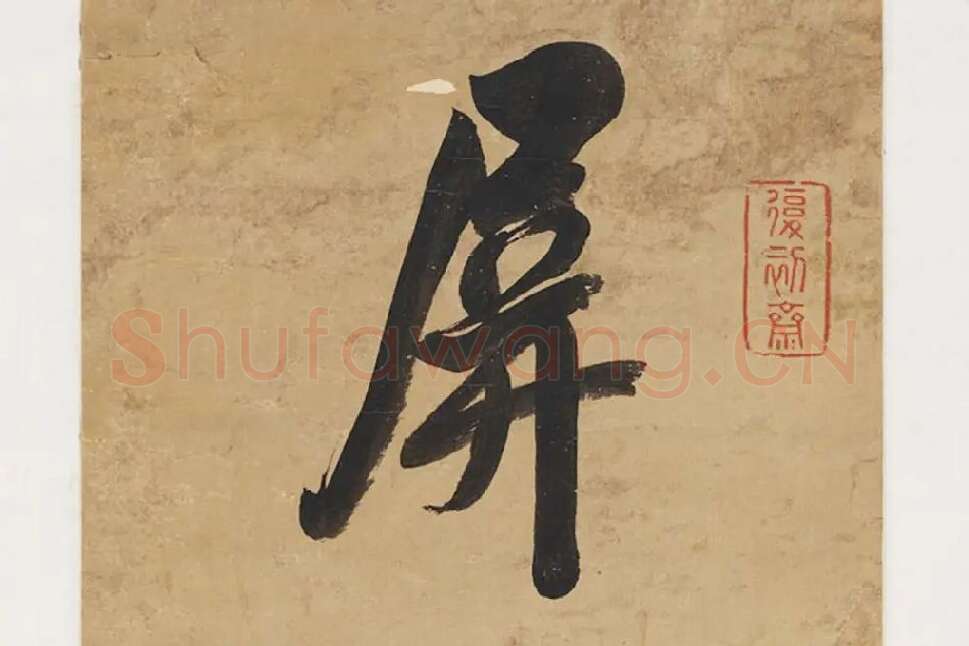 屏
復初齋
Shufawang.CN